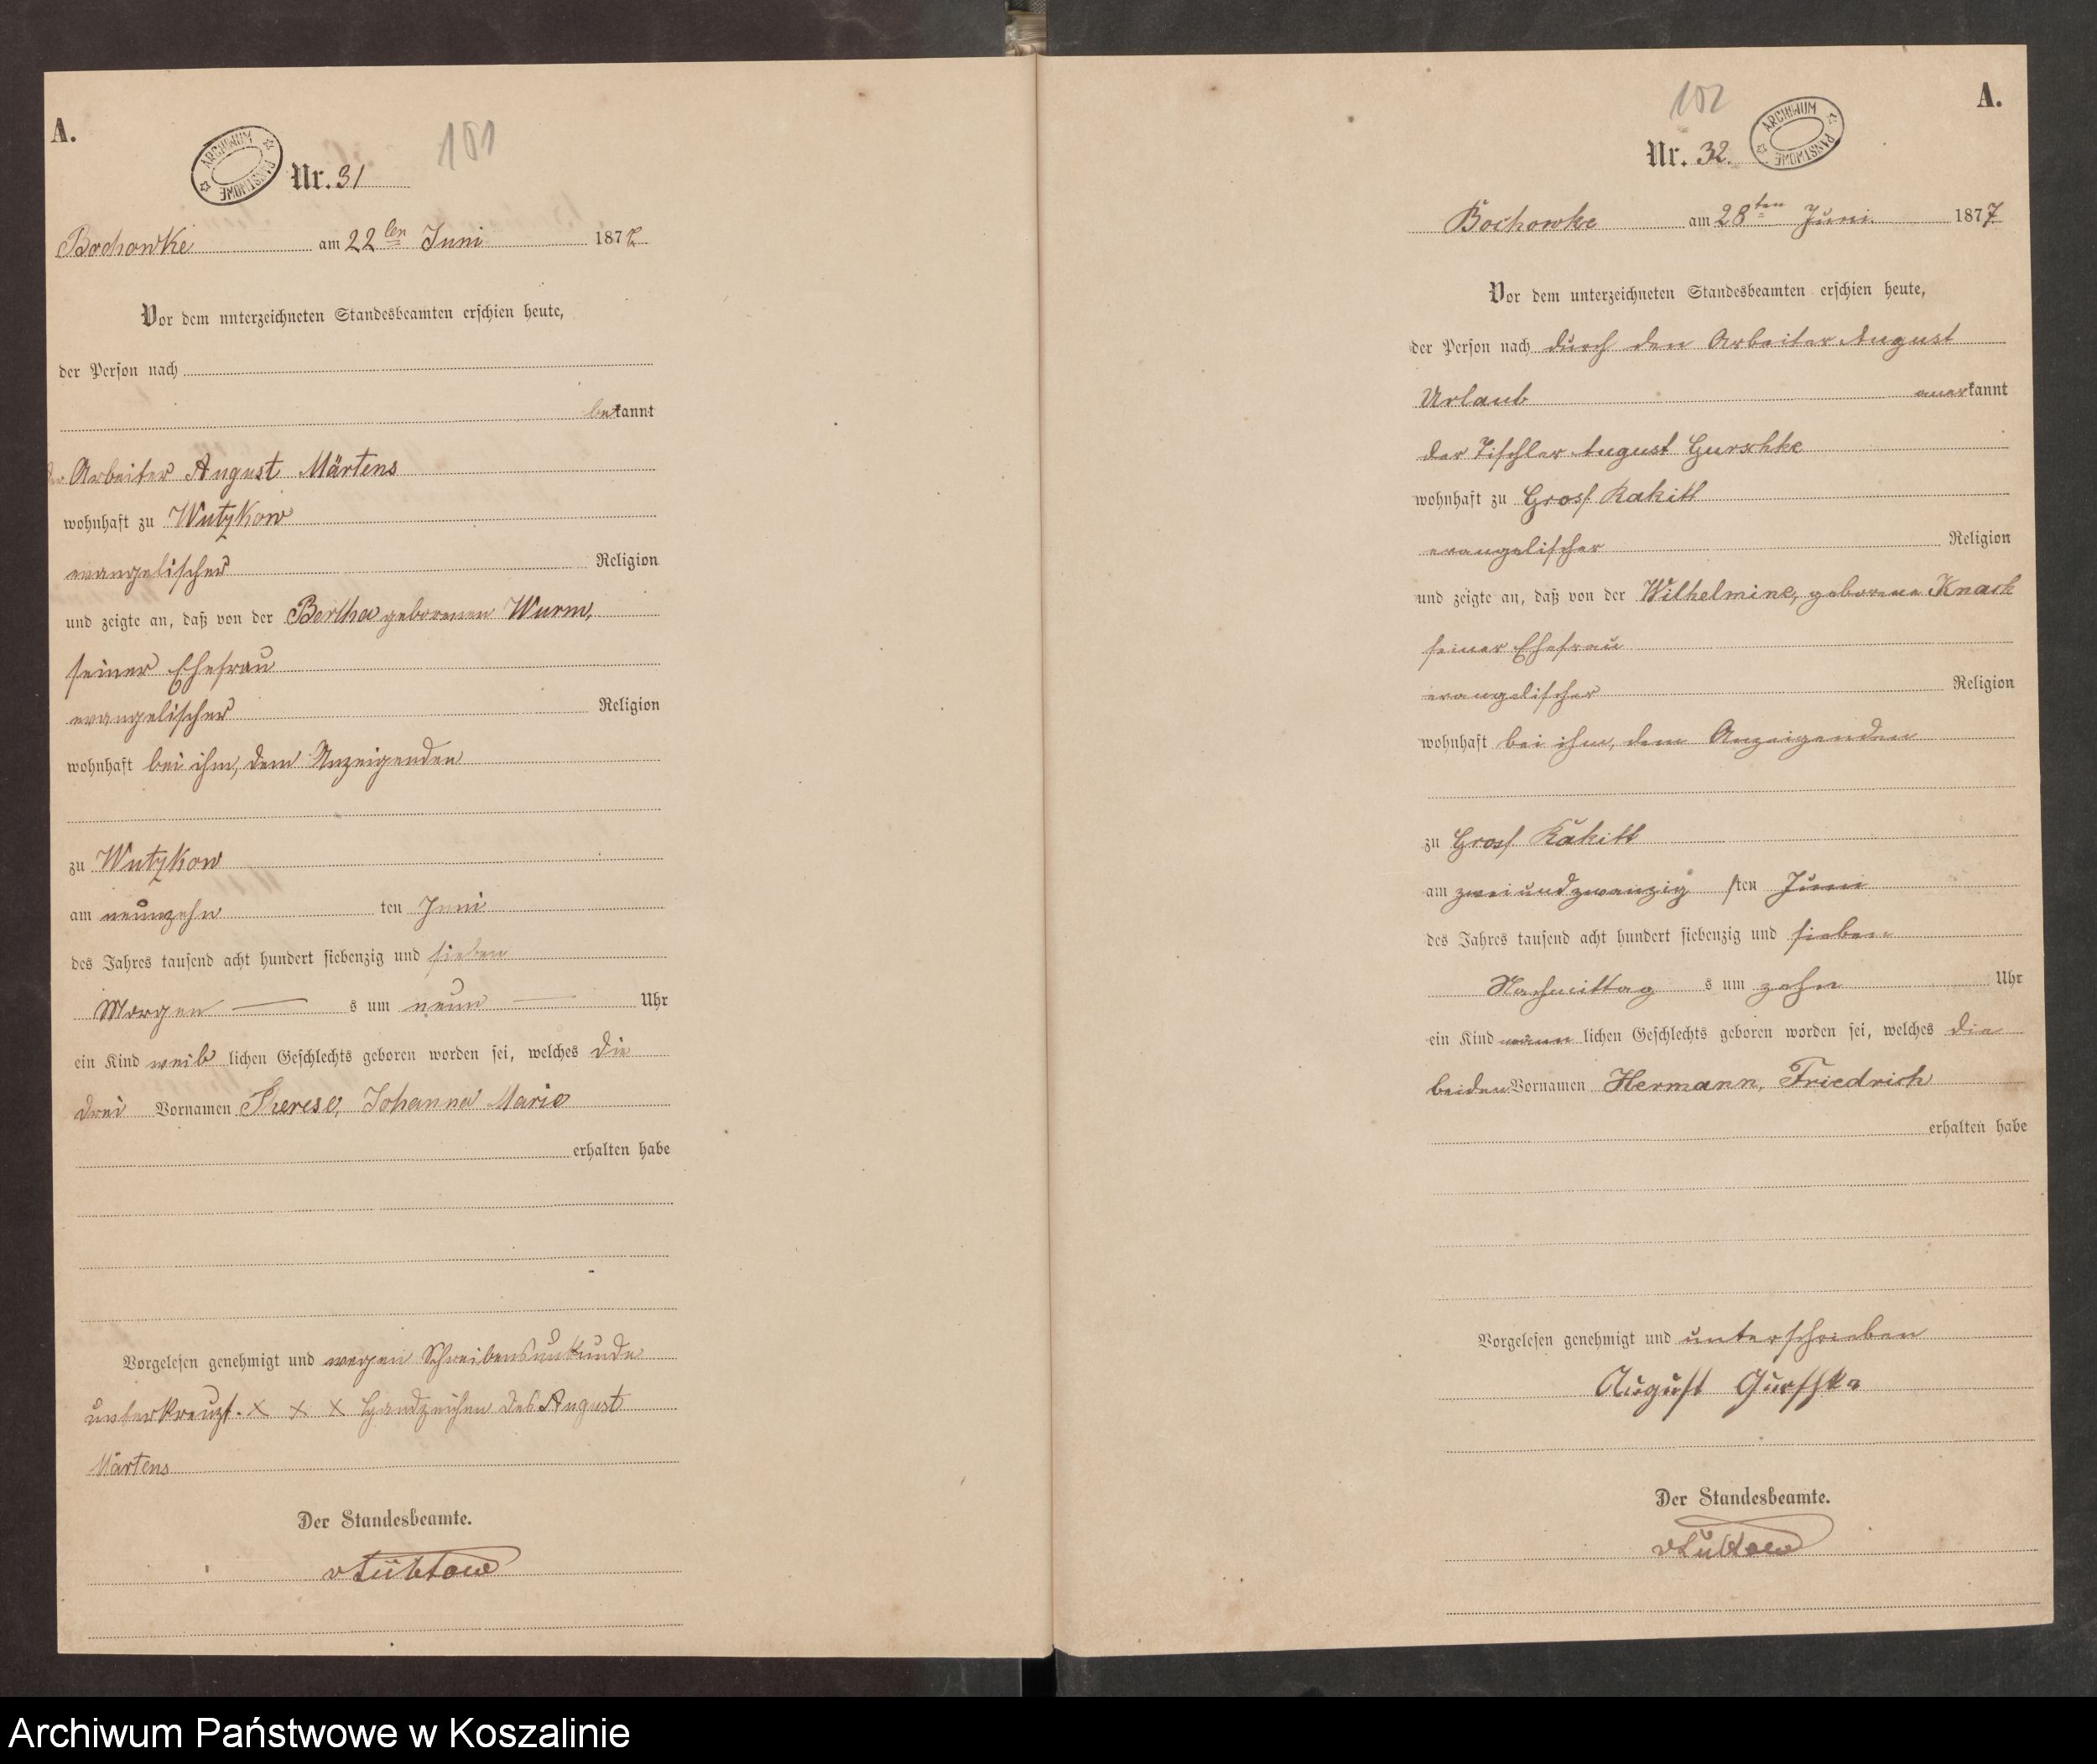 A.
ARCHIWUM PAŃSTWOWE
101
Nr. 31
Bochowke am 22ten Juni 1877
Vor dem unterzeichneten Standesbeamten erschien heute,
der Person nach
bekannt
der Arbeiter August Märtens
wohnhaft zu Wutzkow
evangelischer Religion
und zeigte an, daß von der Bertha geborenen Wurm,
seiner Ehefrau
evangelischer Religion
wohnhaft bei ihm, dem Anzeigenden
zu Wutzkow
am neunzehn ten Juni
des Jahres tausend acht hundert siebenzig und sieben
Morgen — s um neun — Uhr
ein Kind weiblichen Geschlechts geboren worden sei, welches die
drei Vornamen Therese, Johanna Marie
erhalten habe
Vorgelesen genehmigt und wegen Schreibensunkunde
unterkreuzt. x x x Handzeichen des August
Märtens
Der Standesbeamte.
A.
102
ARCHIWUM PAŃSTWOWE
Nr. 32.
Bochowke am 28ten Juni 1877
Vor dem unterzeichneten Standesbeamten erschien heute,
der Person nach durch den Arbeiter August
Urlaub anerkannt
der Tischler August Gurschke
wohnhaft zu Gross Rakitt
evangelischer Religion
und zeigte an, daß von der Wilhelmine, geborene Knack
seiner Ehefrau
evangelischer Religion
wohnhaft bei ihm, dem Anzeigenden
zu Gross Rakitt
am zweiundzwanzig sten Juni
des Jahres tausend acht hundert siebenzig und sieben
Nachmittag s um zehn Uhr
ein Kind männlichen Geschlechts geboren worden sei, welches die
beiden Vornamen Hermann, Friedrich
erhalten habe
Vorgelesen genehmigt und unterschrieben
August Gurschke
Der Standesbeamte.
Archiwum Państwowe w Koszalinie